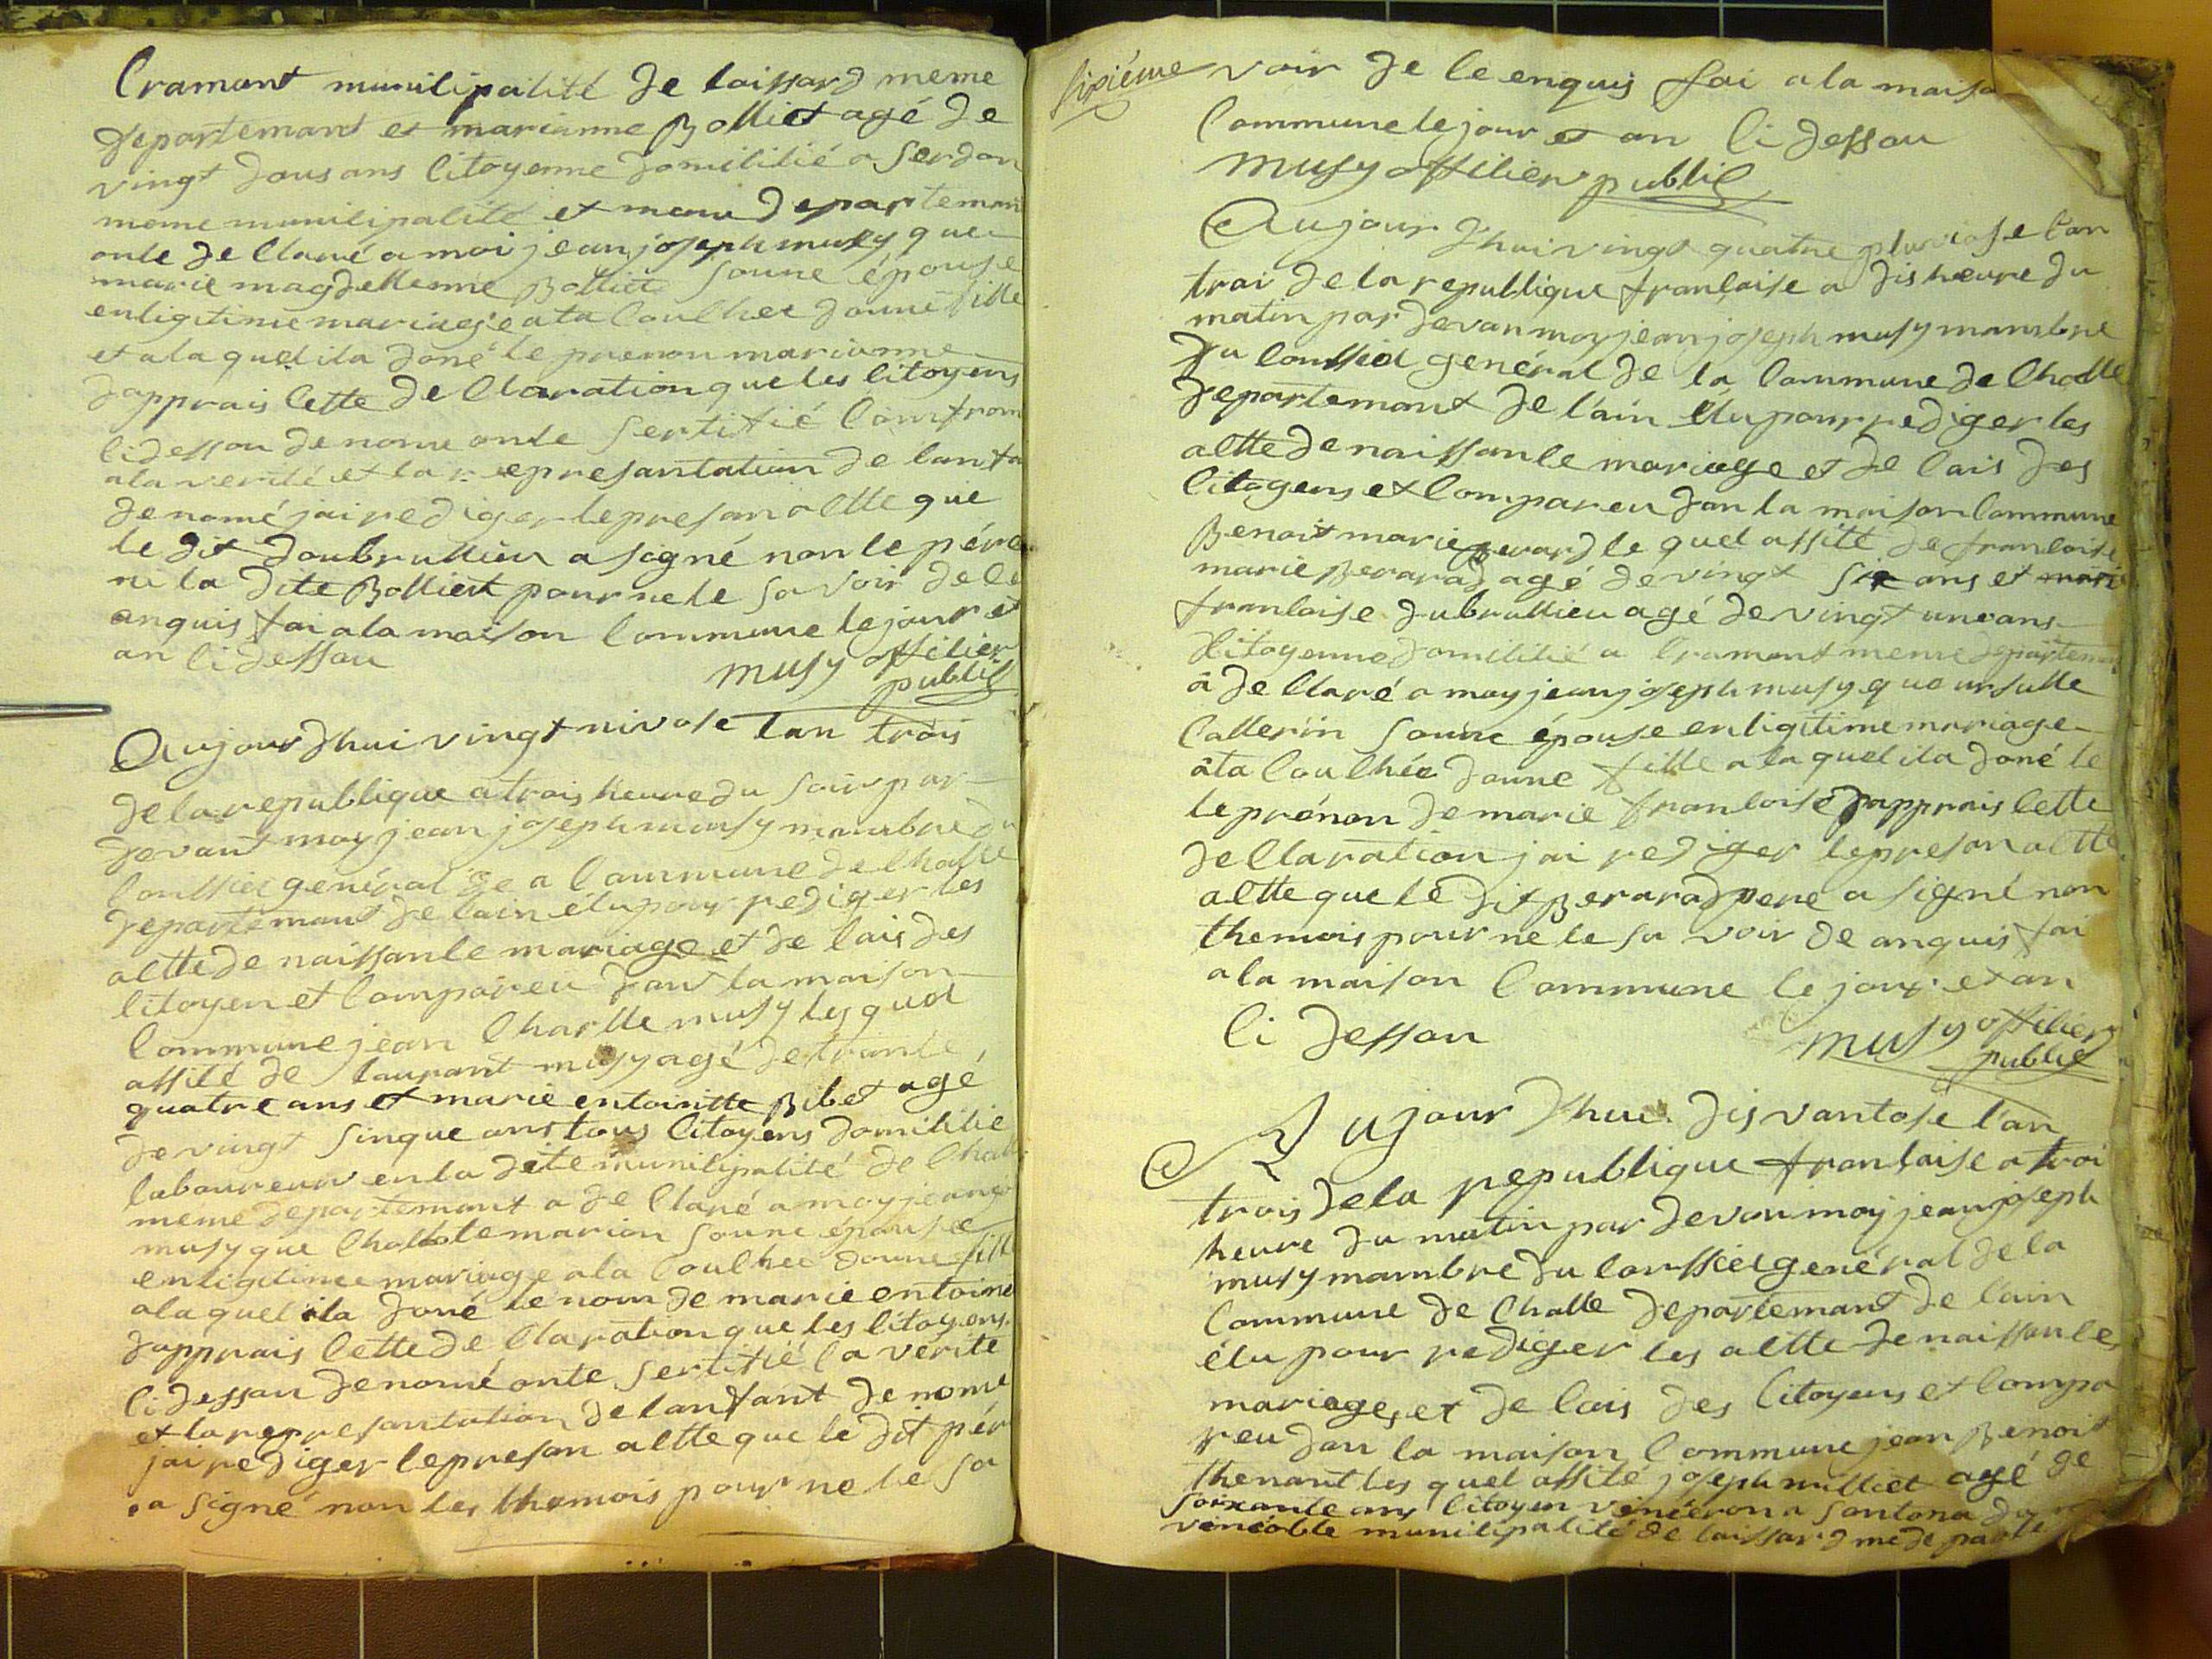 Cramant municipalité de Caissard meme
departemant et marianne Bolliet agé de
vingt dous ans citoyenne domicilié a Serdon
meme municipalité et meme departeman
onte declaré a moi jean joseph musy que
marie magdellenne Bolliet soune épouse
enligitime mariage ata coulhee doune fille
et a la quel ila doné le prenon marianne
dapprais cette declaration que les citoyens
ci dessou denome onte sertifié comfrom
a la verité et la representation de lanfa
denomé jai rediger le preson actte que
le dit doubrullieu a signé non le pére
ni la dite Bolliet pour ne le savoir de le
enquis fai a la maison commune le jour et
an ci dessou
musy officier
public
Aujourdhui vingt nivose lan trois
de la republique a trois heure du soir par
devant moy jean joseph musy manbre du
conssiel genéral de a commune de Challe
departemant de lain élu pour rediger les
actte de naissance mariage et de cais des
citoyen et compareu dans la maison
commune jean Charlle musy les quel
assité de laurant musy agé de trante
quatre ans et marie entoinitte Bibet agé
de vingt sinque ans tous citoyens domicilie
laboureur en la dite municipalité de Chall
meme departemant a declaré a moy jean jo
musy que Challote marion soune épouse
enligitimee mariage a la coulhee doune fill
a la quel ila doné le nom de marie entoine
dapprais cette declaration que les citoyens
ci dessou denomé onte sertifié la vérité
et la reppresantation de lanfant denome
jai rediger le preson actte que le dit pér
a signé non les themois pour ne le sa
sixiéme
voir de le enquis fai a la maiso
commune le jour et an ci dessou
musy officier public
Aujour dhui vingt quatre pluviose lan
troi de la republique francaise a dis heure du
matin par devan moy jean joseph musy manbre
du conssiel genéral de la commune de Challe
departemant de l'ain élu pour rediger les
actte de naissance mariage et de cais des
citoyens et compareu dan la maison commune
Benoit marie Berard le quel assité de francoise
marie Berarad agé de vingt six ans et mari
francoise dubrullieu agé de vingt une ans
citoyenne domicilié a Cramant meme departeman
a declaré a moy jean joseph musy que ursulle
Callerin soune épouse enligitime mariage
ata coulhée doune fille a la quel ila doné le
le prénon de marie francoise dapprais cette
declaration jai rediger le preson actte
actte que le dit Berarad pere a signé non
themois pour ne le sa voir de anquis fai
a la maison commune le jour et an
ci dessou
musy officier
public
Aujour dhui dis vantose l'an
trois de la republique francaise a troi
heure du matin par devan moy jean joseph
musy mambre du conssiel genéral de la
commune de Challe departemant de lain
élu pour rediger les actte de naissance
mariages et de cais des citoyens et compa
reu dan la maison commune jean Benoit
thenant les quel assité joseph milliet agé de
soixante ans citoyen vinéeron a
municipalité de Caissard